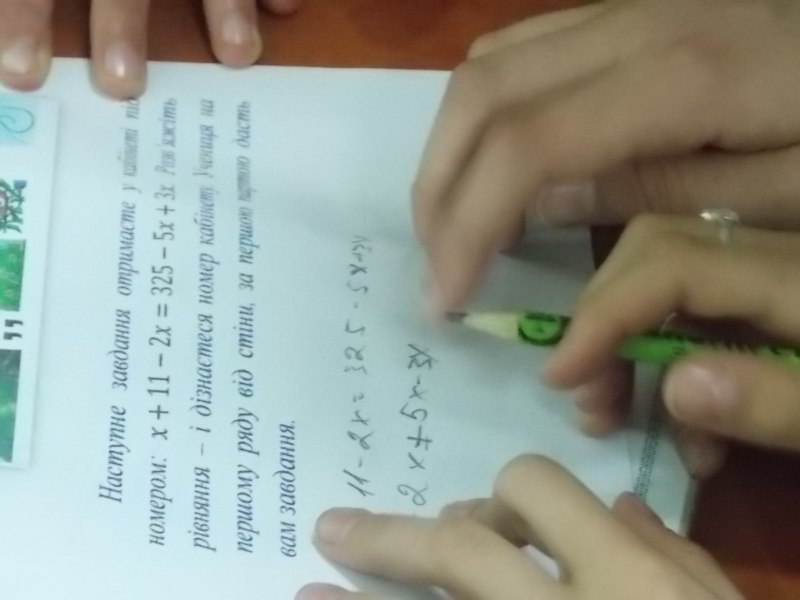 Наступне завдання отримаєте у кабінеті під
номером: x + 11 − 2x = 325 − 5x + 3x. Розв'яжіть
рівняння – і дізнаєтеся номер кабінету. Учениця на
першому ряду від стіни, за першою партою дасть
вам завдання.
11 - 2x = 325 - 5x + 3x
2x + 5x - 3x